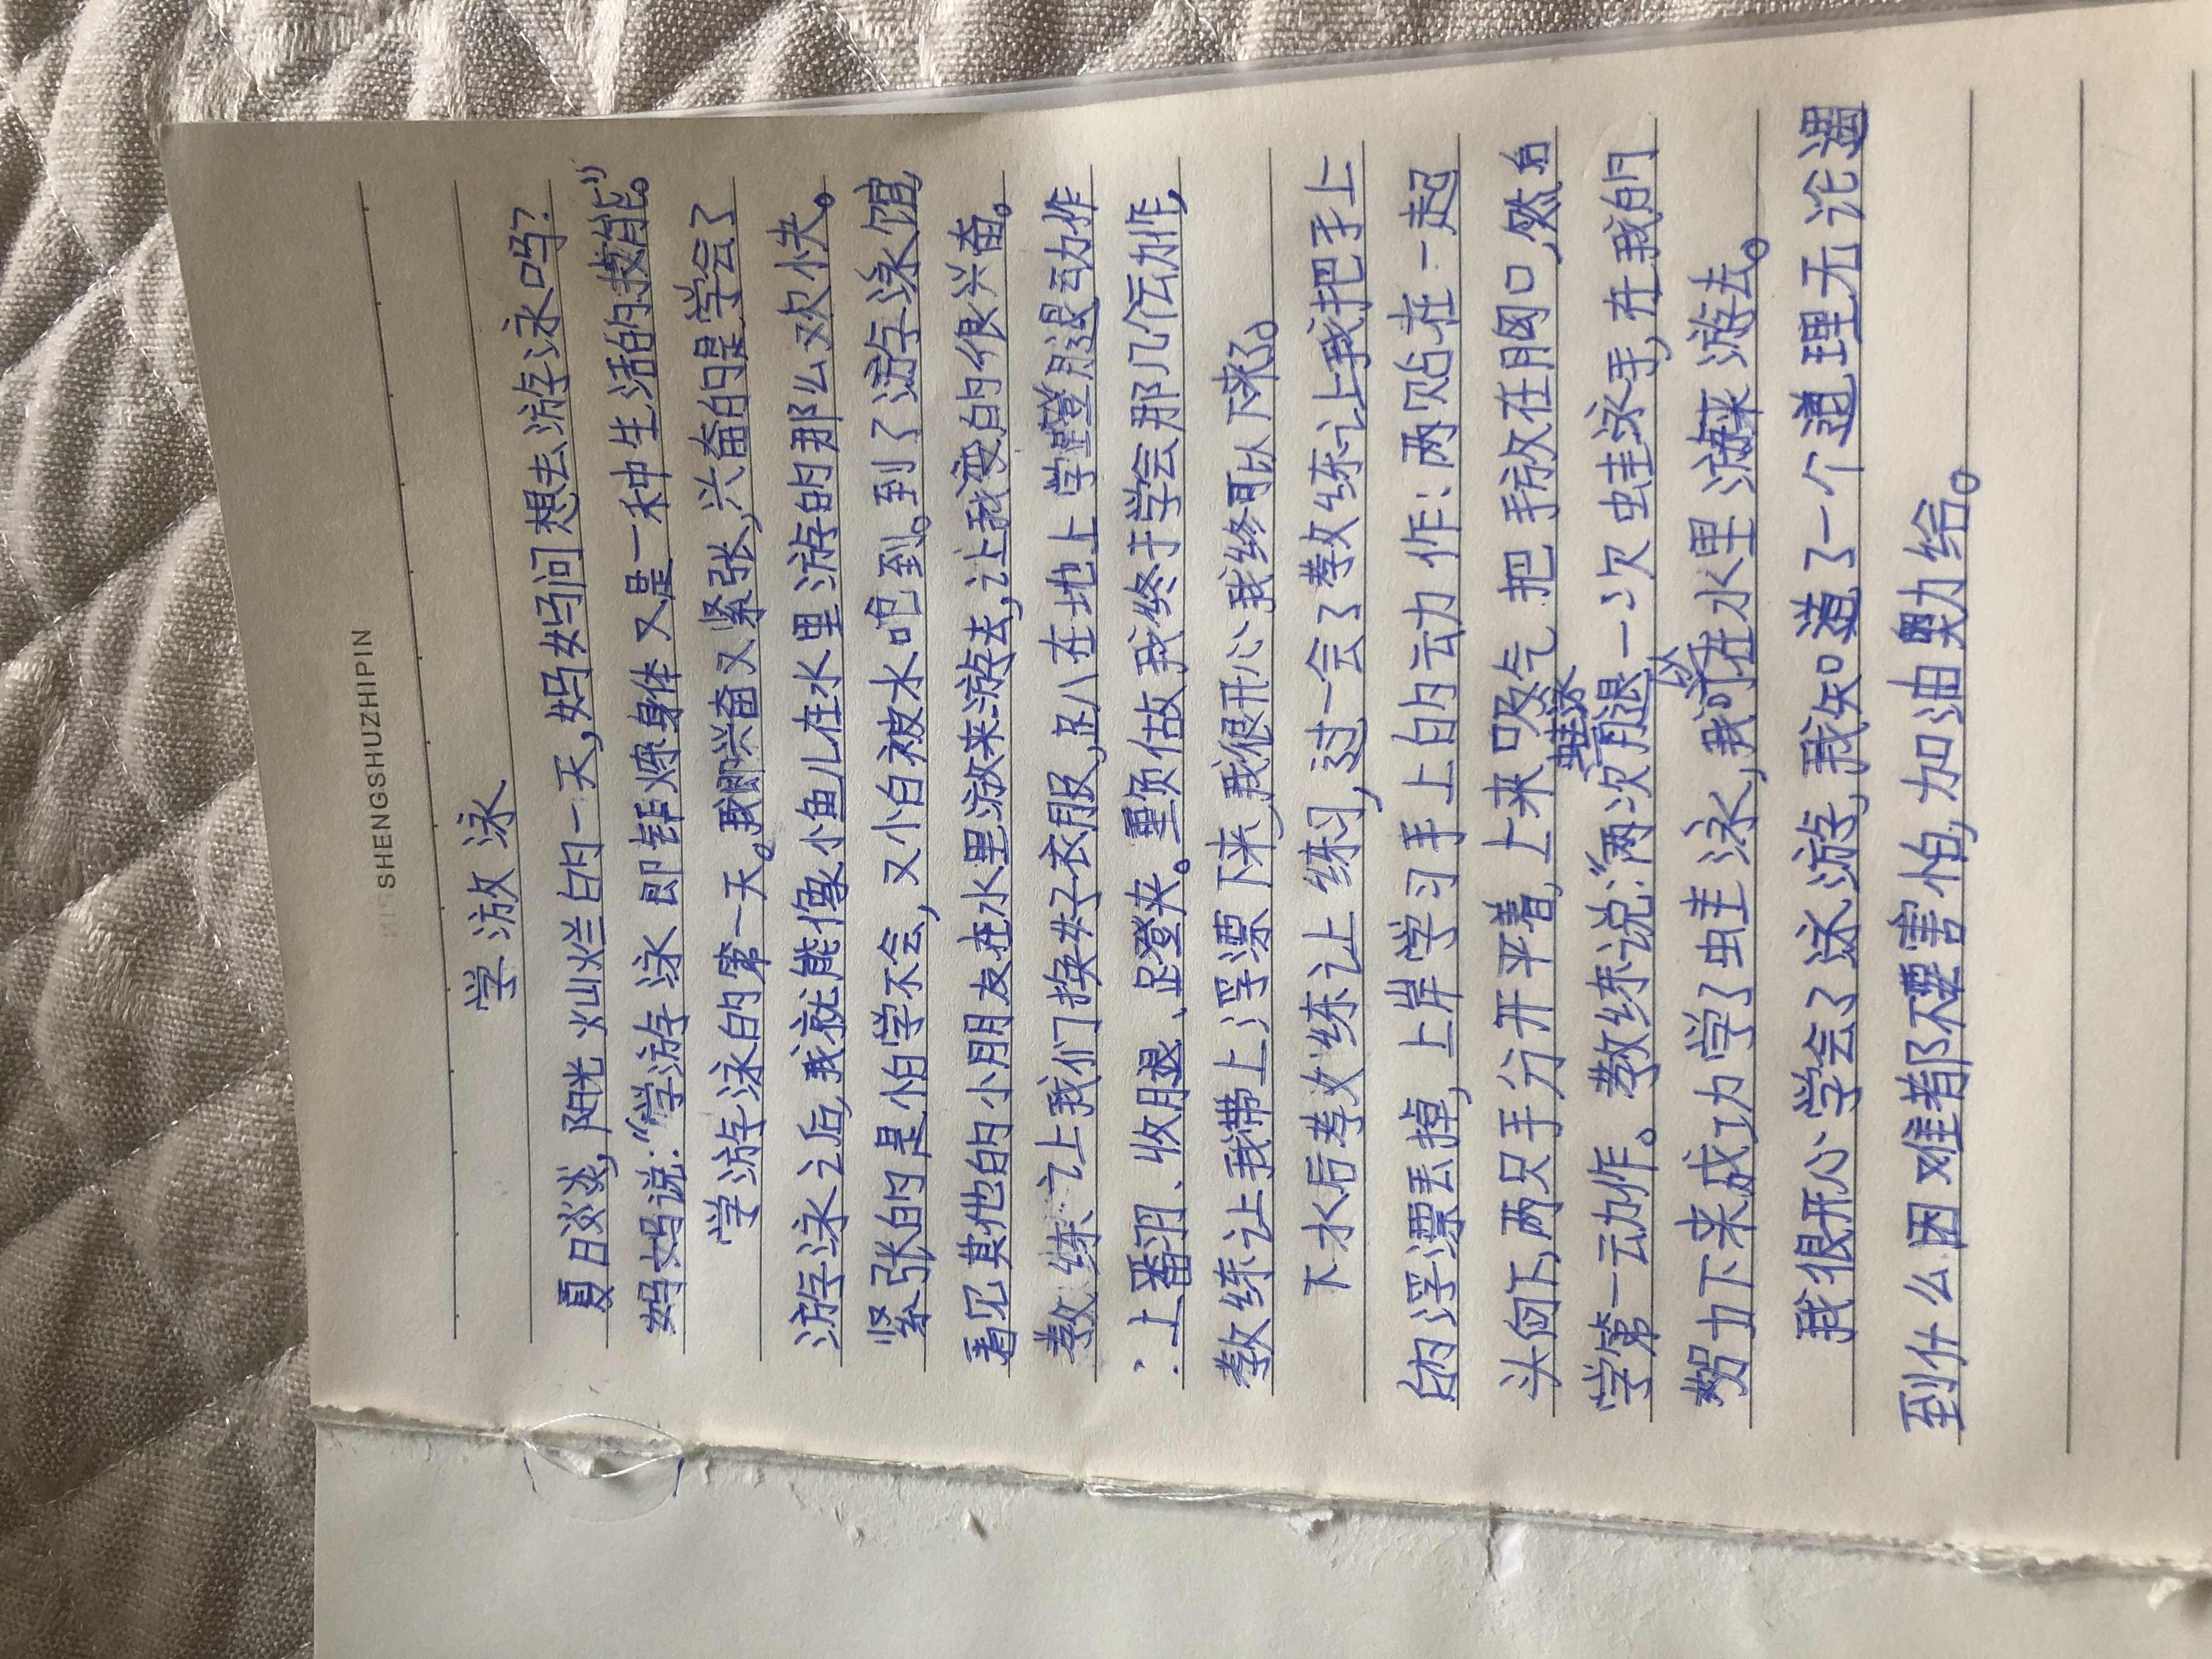 SHENGSHUZHIPIN
学游泳
夏日炎炎,阳光灿烂的一天,妈妈问想去游泳吗?
妈妈说:“学游泳即锻炼身体又是一种生活的技能。”
学游泳的第一天。我即兴奋又紧张,兴奋的是学会了
游泳之后,我就能像小鱼儿在水里游的那么欢快。
紧张的是怕学不会,又怕被水呛到。到了游泳馆,
看见其他的小朋友在水里游来游去,让我变的很兴奋。
教练让我们换好衣服,趴在地上学蹬腿动作
:上翻、收腿、蹬夹。重复做我终于学会那几个动作,
教练让我带上浮漂下来,我很开心我终可以下来了。
下水后教练让练习,过一会了教练让我把手上
的浮漂丢掉,上岸学习手上的动作:两贴在一起
头向下,两只手分开平着,上来吸气把手放在胸口,然后
学第一动作。教练说:“两次蛙泳腿一次蛙泳手,在我的
努力下来成功学了蛙泳,我可以在水里游来游去。
我很开心学会了泳游,我知道了一个道理无论遇
到什么困难都不要害怕,加油努力给。